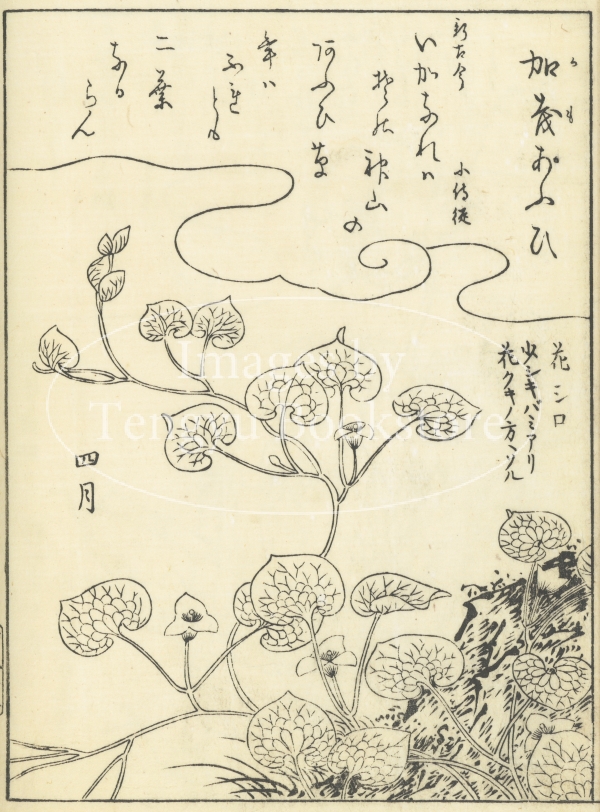 加茂あふひ
かも
新古今　小侍従
いかなれハ
その神山の
あふひ草
年ハ
ふれ
とも
二葉
なる
らん
花シロ
少シキバミアリ
花クキノ方ヘソル
四月
Images by